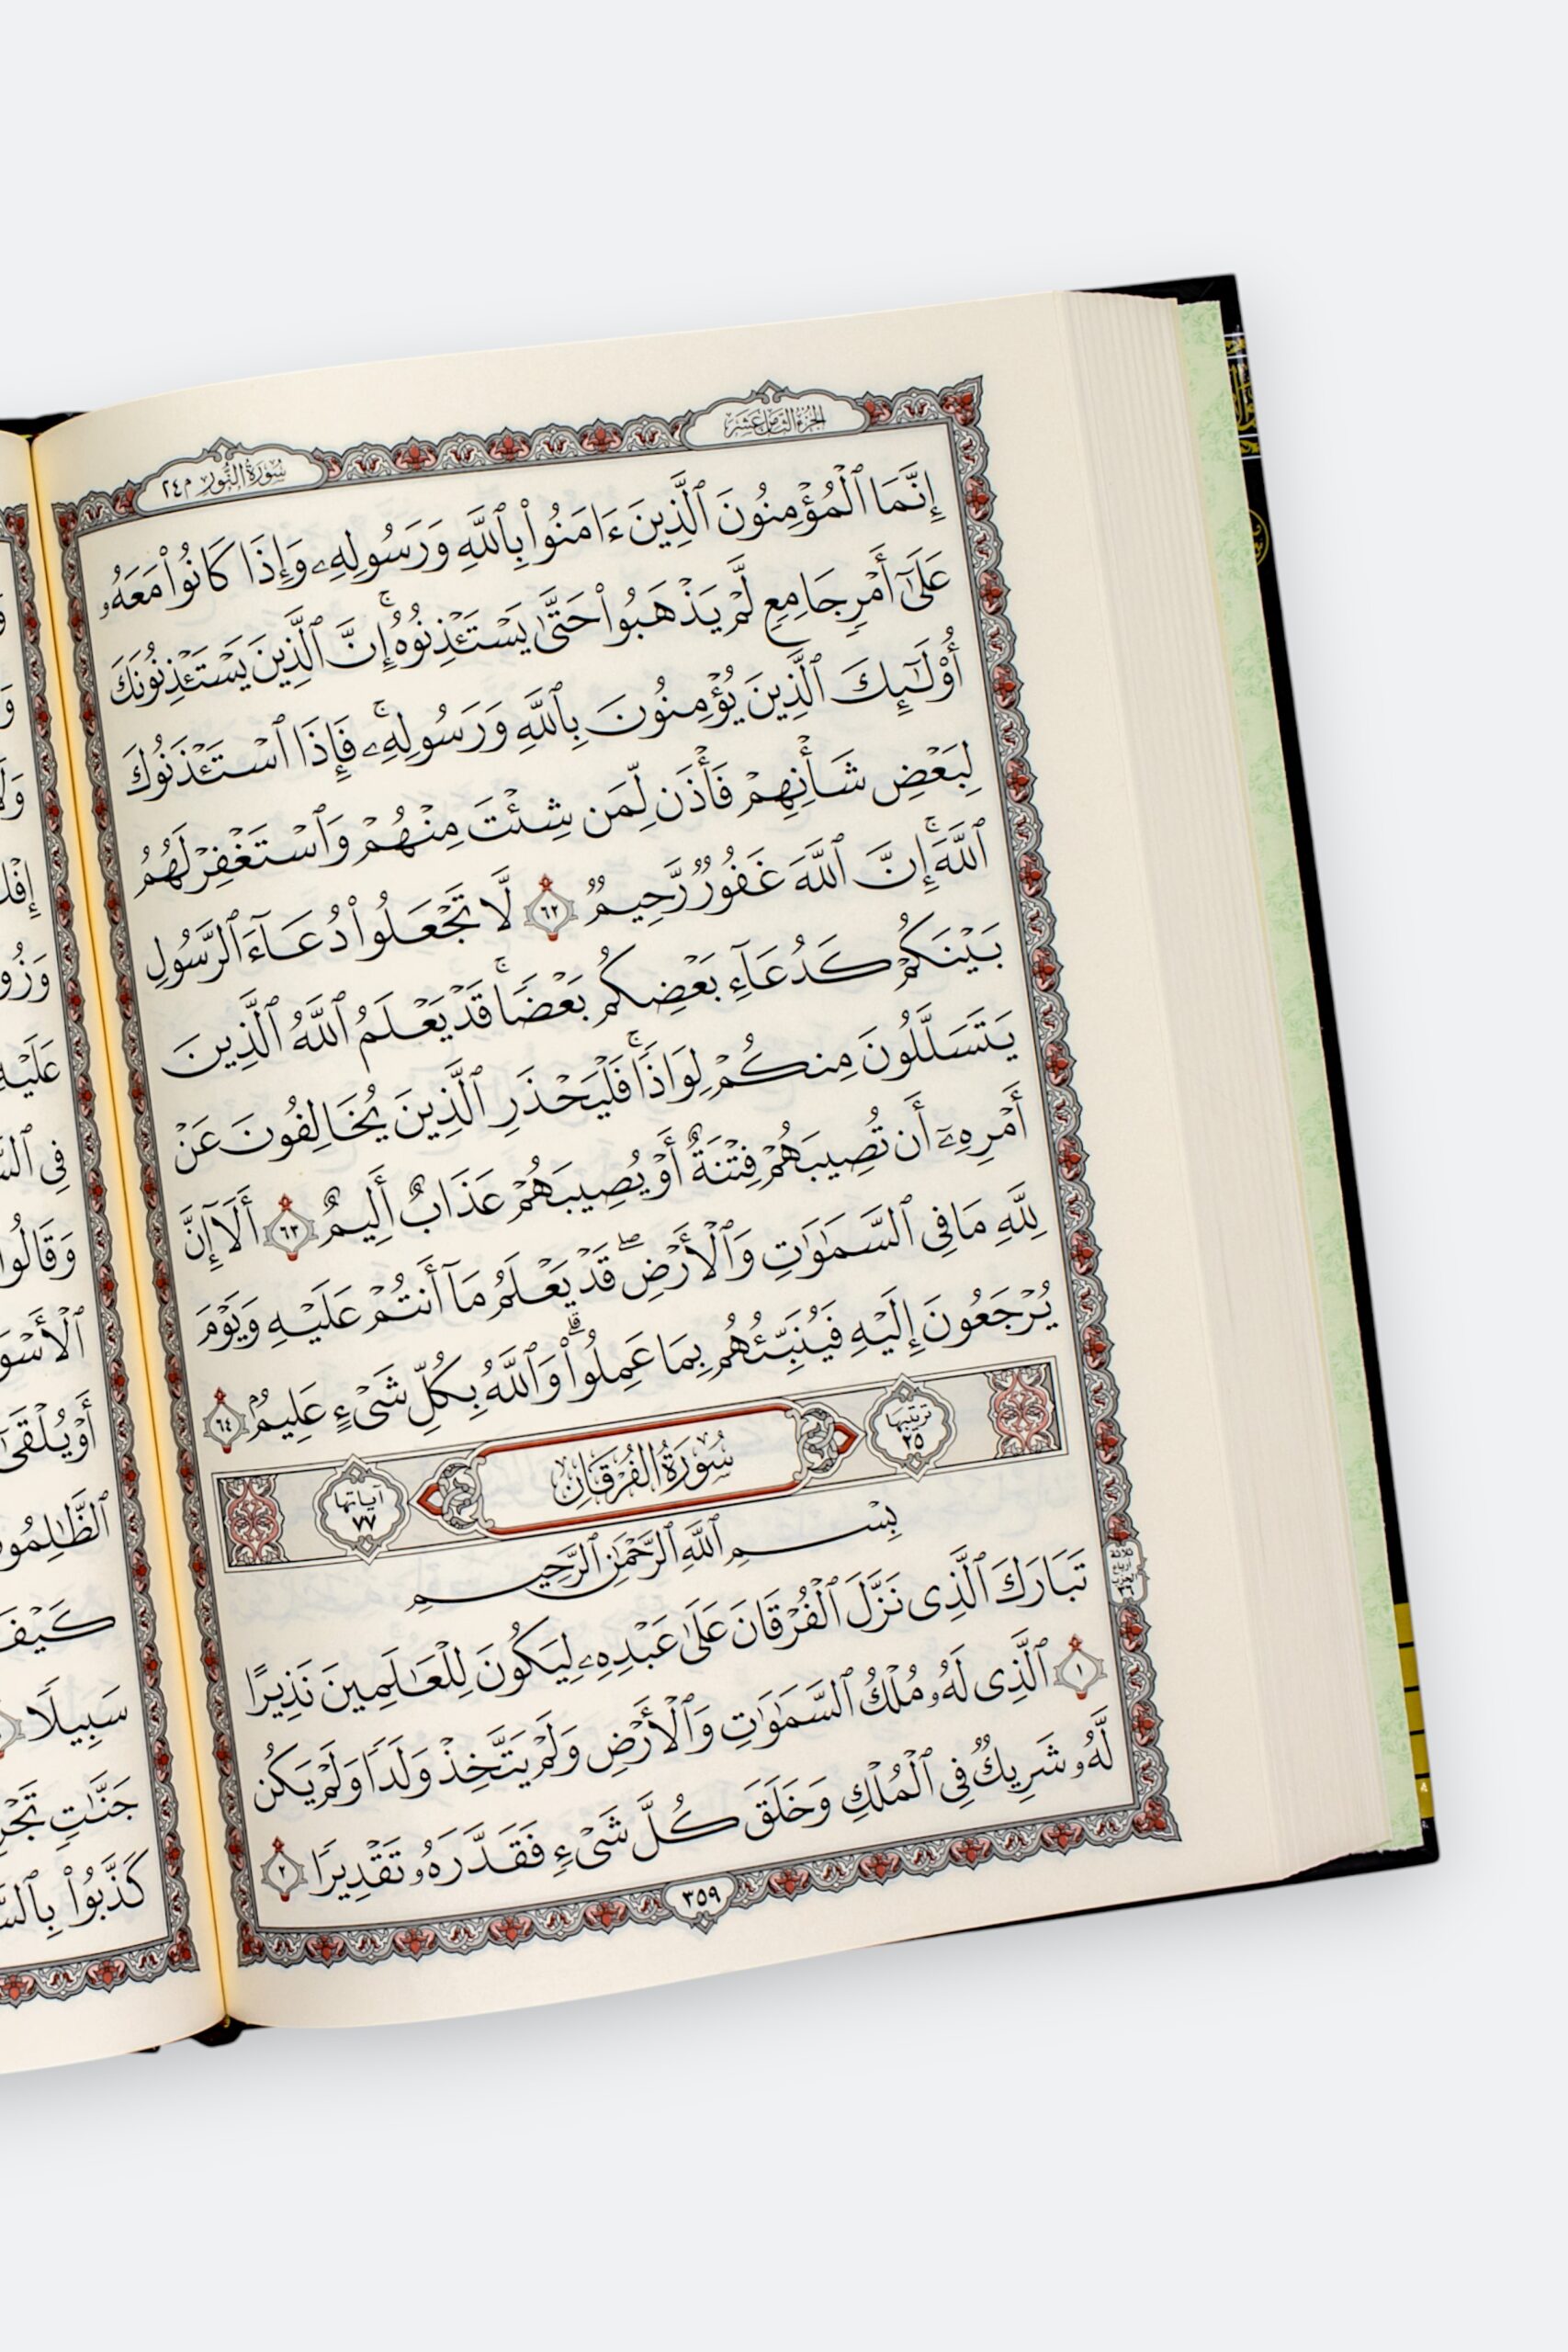 الجزء الثامن عشر
سورة النور م ٢٤
إِنَّمَا ٱلْمُؤْمِنُونَ ٱلَّذِينَ ءَامَنُوا۟ بِٱللَّهِ وَرَسُولِهِۦ وَإِذَا كَانُوا۟ مَعَهُۥ
عَلَىٰٓ أَمْرٍ جَامِعٍ لَّمْ يَذْهَبُوا۟ حَتَّىٰ يَسْتَـْٔذِنُوهُ ۚ إِنَّ ٱلَّذِينَ يَسْتَـْٔذِنُونَكَ
أُو۟لَـٰٓئِكَ ٱلَّذِينَ يُؤْمِنُونَ بِٱللَّهِ وَرَسُولِهِۦ ۚ فَإِذَا ٱسْتَـْٔذَنُوكَ
لِبَعْضِ شَأْنِهِمْ فَأْذَن لِّمَن شِئْتَ مِنْهُمْ وَٱسْتَغْفِرْ لَهُمُ
ٱللَّهَ ۚ إِنَّ ٱللَّهَ غَفُورٌ رَّحِيمٌ ٦٢ لَّا تَجْعَلُوا۟ دُعَآءَ ٱلرَّسُولِ
بَيْنَكُمْ كَدُعَآءِ بَعْضِكُم بَعْضًا ۚ قَدْ يَعْلَمُ ٱللَّهُ ٱلَّذِينَ
يَتَسَلَّلُونَ مِنكُمْ لِوَاذًا ۚ فَلْيَحْذَرِ ٱلَّذِينَ يُخَالِفُونَ عَنْ
أَمْرِهِۦٓ أَن تُصِيبَهُمْ فِتْنَةٌ أَوْ يُصِيبَهُمْ عَذَابٌ أَلِيمٌ ٦٣ أَلَآ إِنَّ
لِلَّهِ مَا فِى ٱلسَّمَـٰوَٰتِ وَٱلْأَرْضِ ۖ قَدْ يَعْلَمُ مَآ أَنتُمْ عَلَيْهِ وَيَوْمَ
يُرْجَعُونَ إِلَيْهِ فَيُنَبِّئُهُم بِمَا عَمِلُوا۟ ۗ وَٱللَّهُ بِكُلِّ شَىْءٍ عَلِيمٌۢ ٦٤
ترتيبها ٢٥
سُورَةُ الفُرْقَانِ
آياتها ٧٧
بِسْمِ ٱللَّهِ ٱلرَّحْمَـٰنِ ٱلرَّحِيمِ
تَبَارَكَ ٱلَّذِى نَزَّلَ ٱلْفُرْقَانَ عَلَىٰ عَبْدِهِۦ لِيَكُونَ لِلْعَـٰلَمِينَ نَذِيرًا
١ ٱلَّذِى لَهُۥ مُلْكُ ٱلسَّمَـٰوَٰتِ وَٱلْأَرْضِ وَلَمْ يَتَّخِذْ وَلَدًا وَلَمْ يَكُن
لَّهُۥ شَرِيكٌ فِى ٱلْمُلْكِ وَخَلَقَ كُلَّ شَىْءٍ فَقَدَّرَهُۥ تَقْدِيرًا ٢
ثلاثة
أرباع
الحزب
٣٥٩
عَلَيْهِ
فِى
وَقَالُوا
أَوْ يُلْقَىٰٓ
كَيْفَ
سَبِيلًا
جَنَّـٰتٍ
كَذَّبُوا۟